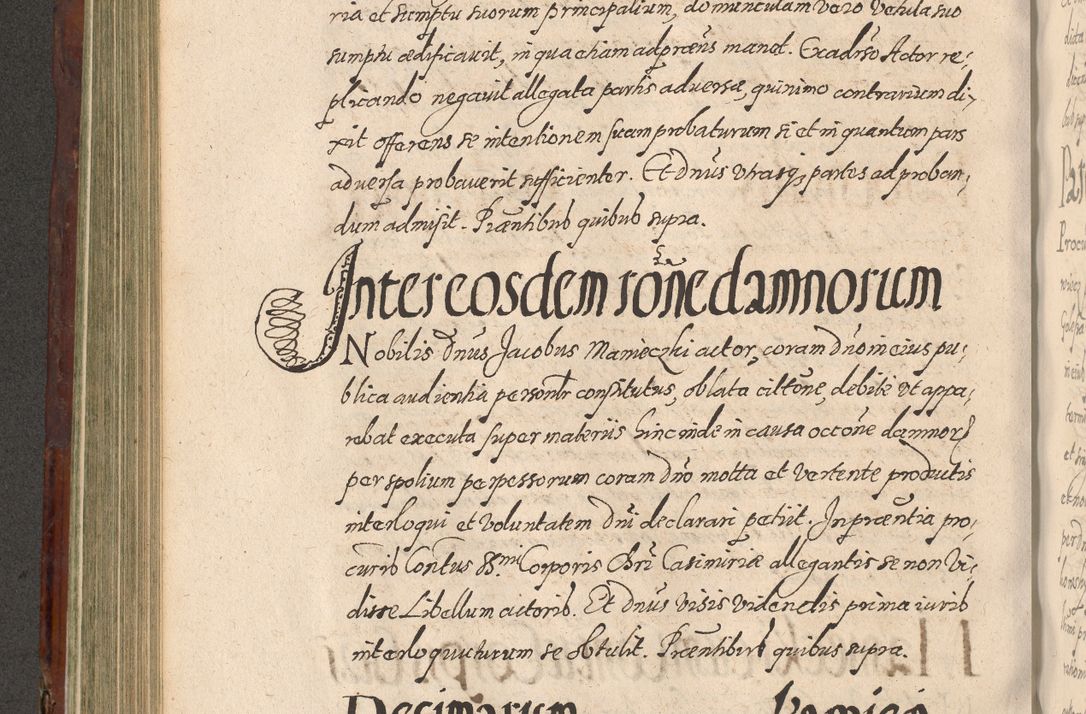 ria et sumptu suorum principalium, domunculam vero vetula suo
sumptu ædificavit, in qua etiam ad præns manet. Ex adrso Actor re,
plicando negavit allegata partis adversæ, quinimo contrarium di,
xit offerens se intentionem suam probaturum si et in quantum pars
adversa probaverit sufficienter. Et Dnus utrasq; partes ad proban,
dum admisit. Præntibus quibus supra.
Inter eosdem rõne damnorum
Nobilis Dnus Jacobus Manieczki actor, coram Dno in eius pu,
blica audientia personlr constitutus, oblata cittõne, debite ut appa,
rebat executa super materiis hinc inde in causa occõne damnor
per spolium perpessorum coram Dno motta et vertente productis
interloqui et voluntatem Dni declarari petiit. In præntia pro,
curis Contus SSmi Corporis Chri Casimiriæ allegantis se non vi,
disse Libellum actoris. Et Dnus visis videndis prima iuris
interloquuturum se obtulit. Præntibus quibus supra.
Decimarum